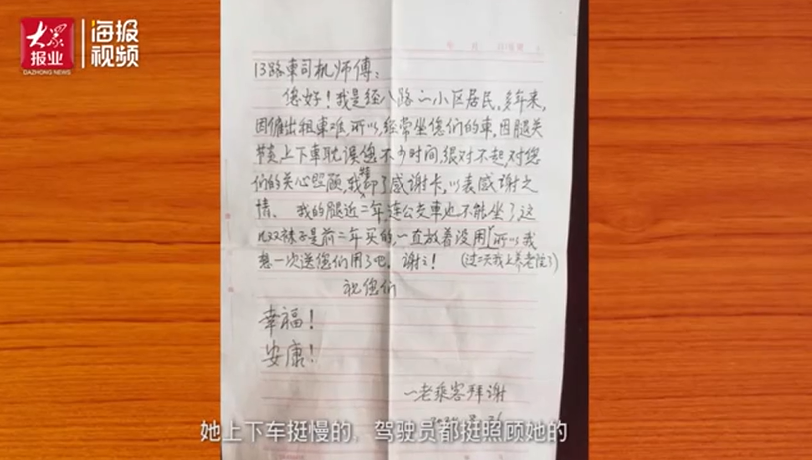 大众报业
DAZHONG NEWS
海报视频
13路車司机师傅：
您好！我是经八路一小区居民，多年来，
因僱出租車难，所以，经常坐您们的車，因腿关
节炎上下車耽误您不少时间，很对不起，对您
们的关心照顾，我特印了感谢卡，以表感谢之
情、我的腿近二年连公交車也不能坐了，这
几双袜子是前二年买的，一直放着没用，所以我
想一次送您们用了吧，谢之！（过二天我上养老院了）
祝您们
幸福！
安康！
一老乘客拜谢
她上下车挺慢的，驾驶员都挺照顾她的